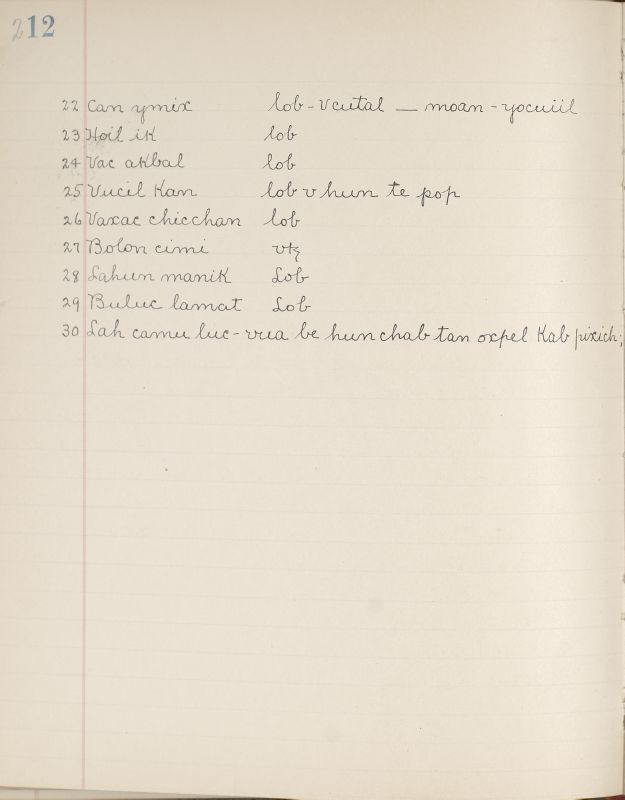 212
22 Can ymix lob - vcutal — moan - yocuiil
23 Hoil ik lob
24 Vac akbal lob
25 Vucil Kan lob v hun te pop
26 Vaxac chicchan lob
27 Bolon cimi utz
28 Lahun manik Lob
29 Buluc lamat Lob
30 Lah camu luc - vua be hun chab tan oxpel Kab pixich;